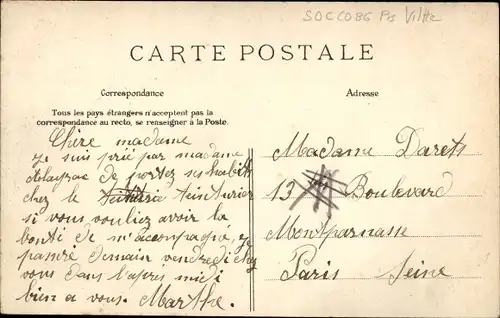 SOCCO86 Ps Viltte
CARTE POSTALE
Correspondance
Adresse
Tous les pays étrangers n'acceptent pas la
correspondance au recto, se renseigner à la Poste.
Chère madame
je suis prié par madame
de portez ses habits
chez le teinturier
si vous vouliez avoir la
bonti de m'accompagné, je
passré demain vendredi chez
vous dans l'apres midi
bien a vous. Marthe.
Madame Darets
13 Boulevard
Montparnasse
Paris Seine